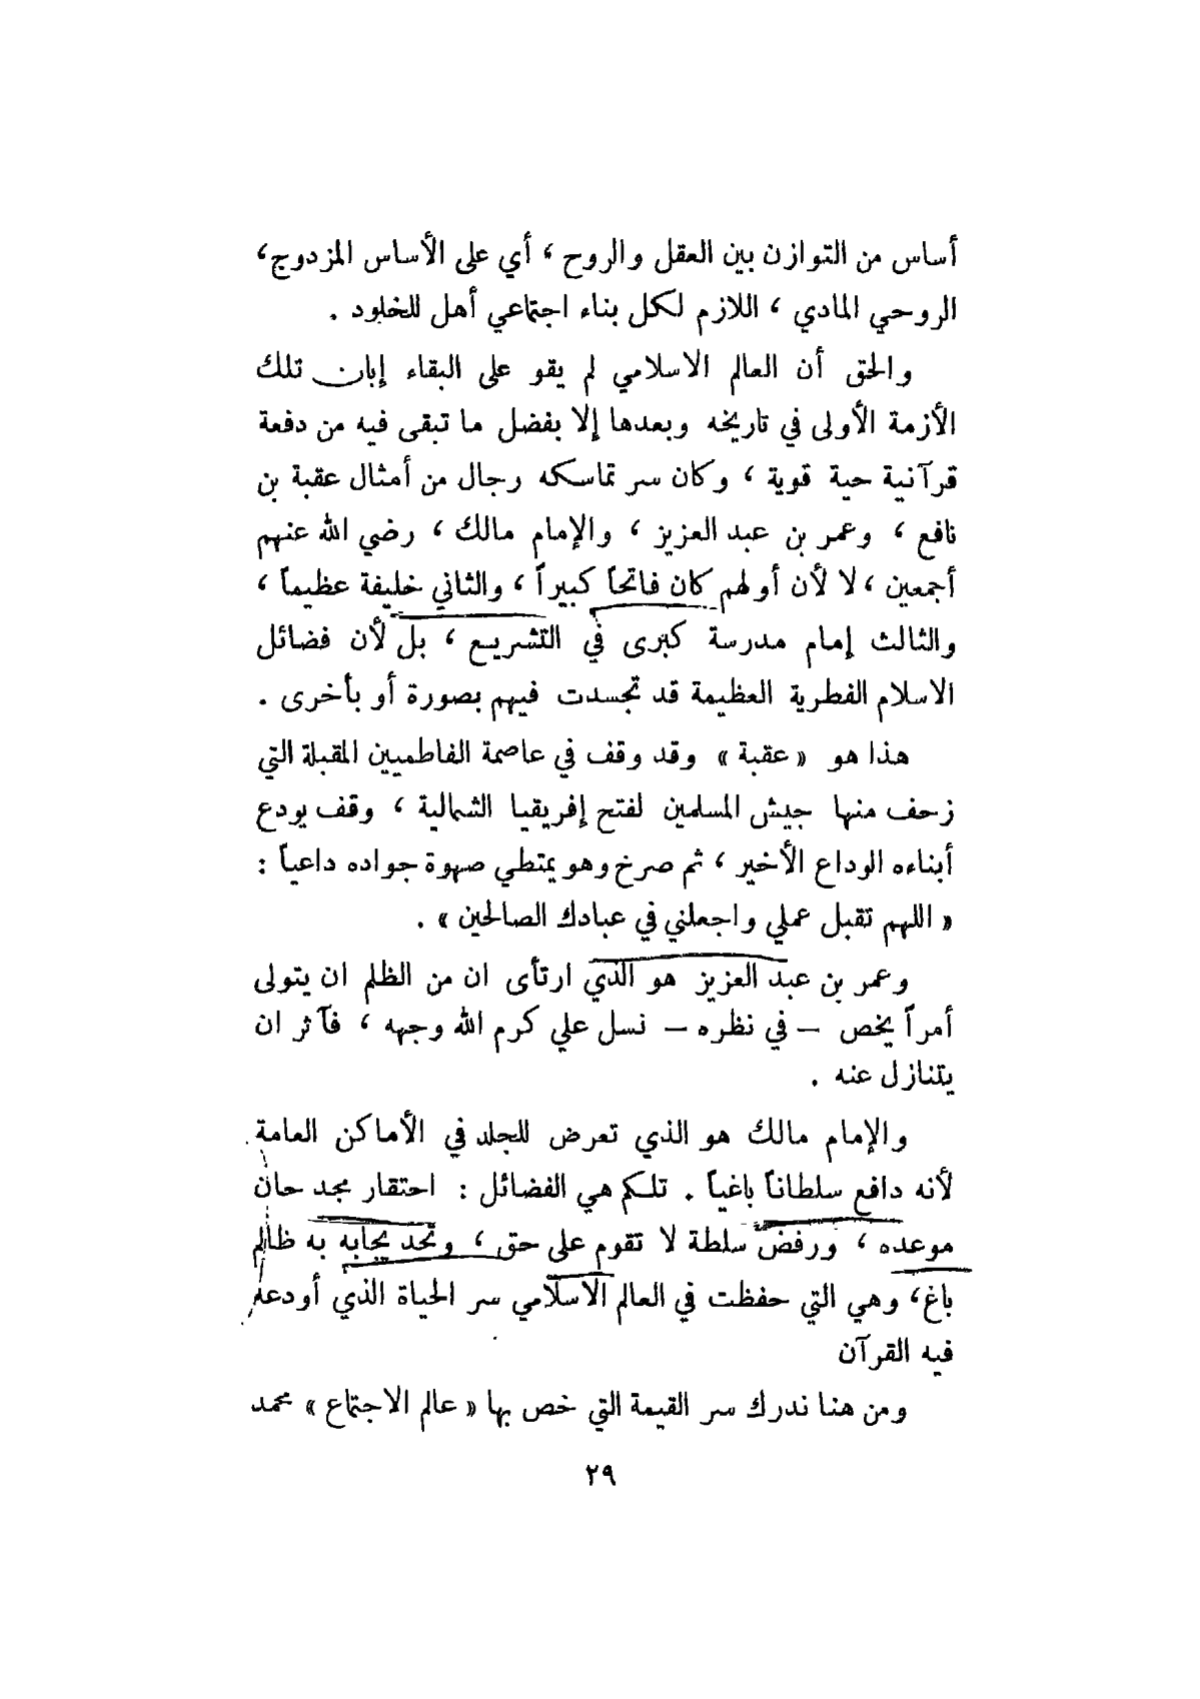 أساس من التوازن بين العقل والروح ، أي على الأساس المزدوج،
الروحي المادي ، اللازم لكل بناء اجتماعي أهل للخلود .
والحق أن العالم الاسلامي لم يقو على البقاء إبان تلك
الأزمة الأولى في تاريخه وبعدها إلا بفضل ما تبقى فيه من دفعة
قرآنية حية قوية ، وكان سر تماسكه رجال من أمثال عقبة بن
نافع ، وعمر بن عبد العزيز ، والإمام مالك ، رضي الله عنهم
أجمعين ، لا لأن أولهم كان فاتحاً كبيراً ، والثاني خليفة عظيماً ،
والثالث إمام مدرسة كبرى في التشريع ، بل لأن فضائل
الاسلام الفطرية العظيمة قد تجسدت فيهم بصورة أو بأخرى .
هذا هو « عقبة » وقد وقف في عاصمة الفاطميين المقبلة التي
زحف منها جيش المسلمين لفتح إفريقيا الشمالية ، وقف يودع
أبناءه الوداع الأخير ، ثم صرخ وهو يمتطي صهوة جواده داعياً :
« اللهم تقبل عملي واجعلني في عبادك الصالحين » .
وعمر بن عبد العزيز هو الذي ارتأى ان من الظلم ان يتولى
أمراً يخص – في نظره – نسل علي كرم الله وجهه ، فآثر ان
يتنازل عنه .
والإمام مالك هو الذي تعرض للجلد في الأماكن العامة
لأنه دافع سلطاناً باغياً . تلكم هي الفضائل : احتقار مجد حان
موعده ، ورفض سلطة لا تقوم على حق ، وتحد يجابه به ظالم
باغ، وهي التي حفظت في العالم الاسلامي سر الحياة الذي أودعه
فيه القرآن
ومن هنا ندرك سر القيمة التي خص بها « عالم الاجتماع » محمد
٢٩